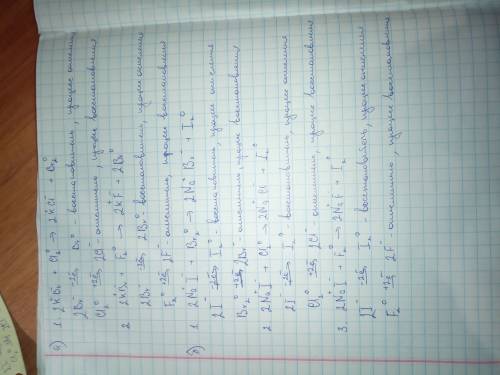 а) 1. 2K⁺Br⁻ + Cl₂⁰ → 2K⁺Cl⁻ + Br₂⁰
2Br⁻ -2e̅→ Br₂⁰ - восстановитель, процесс окисления
Cl₂⁰ +2e̅→ 2Cl⁻ окислитель, процесс восстановления
2. 2K⁺Br⁻ + F₂⁰ → 2K⁺F⁻ + 2Br⁰
2Br⁻ -2e̅→ 2Br⁰ - восстановитель, процесс окисления
F₂⁰ +2e̅→ 2F⁻ - окислитель, процесс восстановления
б) 1. 2Na⁺I⁻ + Br₂⁰ → 2Na⁺Br⁻ + I₂⁰
2I⁻ -2e̅→ I₂⁰ - восстановитель, процесс окисления
Br₂⁰ +2e̅→ 2Br⁻ окислитель, процесс восстановления
2. 2Na⁺I⁻ + Cl₂⁰ → 2Na⁺Cl⁻ + I₂⁰
2I⁻ -2e̅→ I₂⁰ - восстановитель, процесс окисления
Cl₂⁰ +2e̅→ 2Cl⁻ окислитель, процесс восстановления
3. 2Na⁺I⁻ + F₂⁰ → 2Na⁺I⁻ + I₂⁰
2I⁻ -2e̅→ I₂⁰ - восстановитель, процесс окисления
F₂⁰ +2e̅→ 2F⁻ - окислитель, процесс восстановления